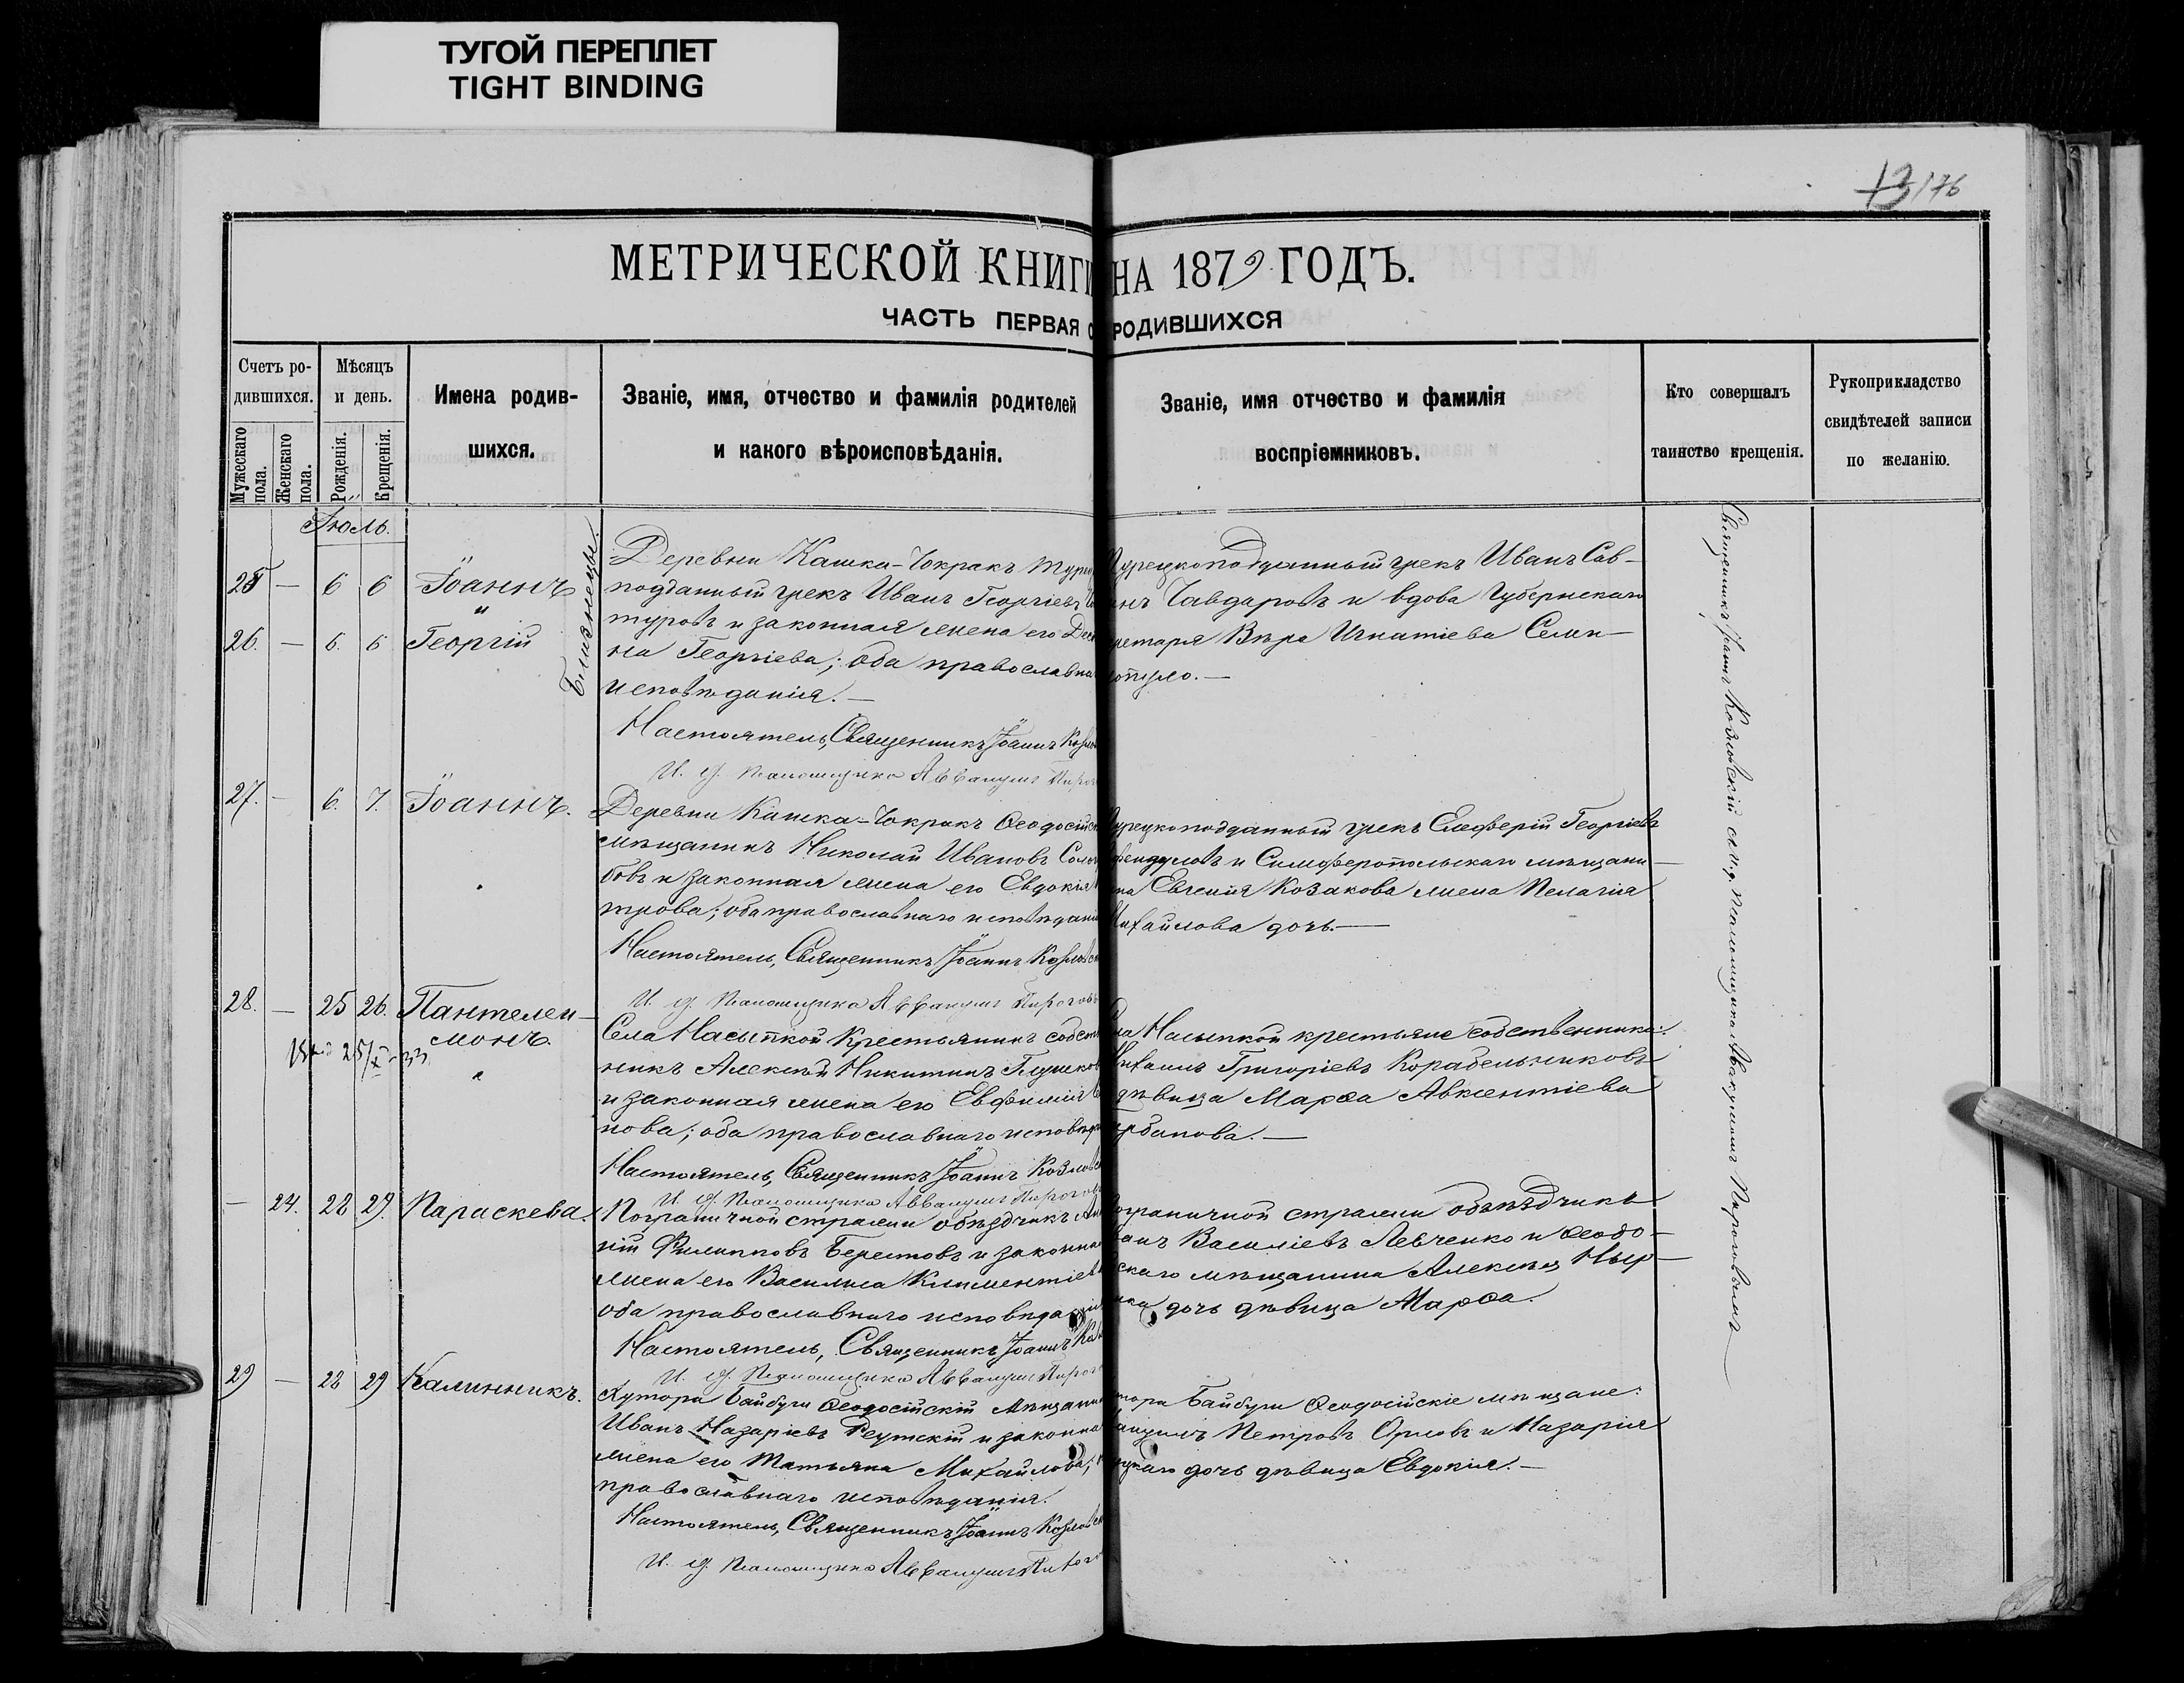 ТУГОЙ ПЕРЕПЛЕТ
TIGHT BINDING
13/176
МЕТРИЧЕСКОЙ КНИГИ НА 1879 ГОДЪ.
ЧАСТЬ ПЕРВАЯ О РОДИВШИХСЯ
Счетъ ро-
дившихся.
Мужескаго
пола.
Женскаго
пола.
Мѣсяцъ
и день.
Рожденія.
Крещенія.
Имена родив-
шихся.
Званіе, имя, отчество и фамилія родителей
и какого вѣроисповѣданія.
Званіе, имя отчество и фамилія
воспріемниковъ.
Кто совершалъ
таинство крещенія.
Рукоприкладство
свидѣтелей записи
по желанію.
Іюль.
25 — 6 6 Іоаннъ
"
26. — 6. 6 Георгій
Близнецы.
Деревни Кашка-Чокракъ Турец
подданный грекъ Иванъ Георгіевъ
туровъ и законная жена его
на Георгіева; оба православна
исповѣданія.—
Настоятель, Священникъ Іоаннъ Козло
И. д. Псаломщика Аввакумъ Пирог
Турецкоподданный грекъ Иванъ Сав-
инъ Чавдаровъ и вдова Губернскаго
ретаря Вѣра Игнатіева Сели-
опуло.—
27. — 6. 7. Іоаннъ.
Деревни Кашка-Чокракъ Ѳеодосійск
мѣщанинъ Николай Ивановъ Соло
бовъ и законная жена его Евдокія
трова; оба православнаго исповѣдані
Настоятель, Священникъ Іоаннъ Козловск
И. д. Псаломщика Аввакумъ Пирогов
Турецкоподданный грекъ Елеферій Георгіевъ
фендуловъ и Симферопольскаго мѣщани-
на Евгенія Козакова жена Пелагія
Михайлова дочь.—
28. — 25 26. Пантелеи-
монъ.
Села Насыпкой Крестьянинъ собст
никъ Алексѣй Никитинъ Глушков
и законная жена его Евфимія
нова; оба православнаго исповѣда
Настоятель, Священникъ Іоаннъ Козловс
И. д. Псаломщика Аввакумъ Пирогов
Села Насыпкой крестьяне собственники:
Михаилъ Григоріевъ Корабельниковъ
дѣвица Марѳа Авксентіева
рбанова.—
— 24. 28 29. Параскева.
Пограничной стражи объѣздчикъ
ній Филипповъ Берестовъ и законна
жена его Василиса Климентіева
оба православнаго исповѣданія
Настоятель, Священникъ Іоаннъ Коз
И. д. Псаломщика Аввакумъ Пирог
Пограничной стражи объѣздчикъ
ванъ Василіевъ Левченко и Ѳеодо-
скаго мѣщанина Алексѣя Ныр-
ка дочь дѣвица Марѳа.
29 — 28 29 Калинникъ.
Хутора Байбуги Ѳеодосійскій Мѣщанин
Иванъ Назаріевъ Реутскій и законна
жена его Татьяна Михайлова;
православнаго исповѣданія.
Настоятель, Священникъ Іоаннъ Козловск
И. д. Псаломщика Аввакумъ Пирог
тора Байбуги Ѳеодосійскіе мѣщане:
Петровъ Орловъ и Назарія
утскаго дочь дѣвица Евдокія.—
Священникъ Іоаннъ Козловскій съ и. д. Псаломщика Аввакумомъ Пироговымъ